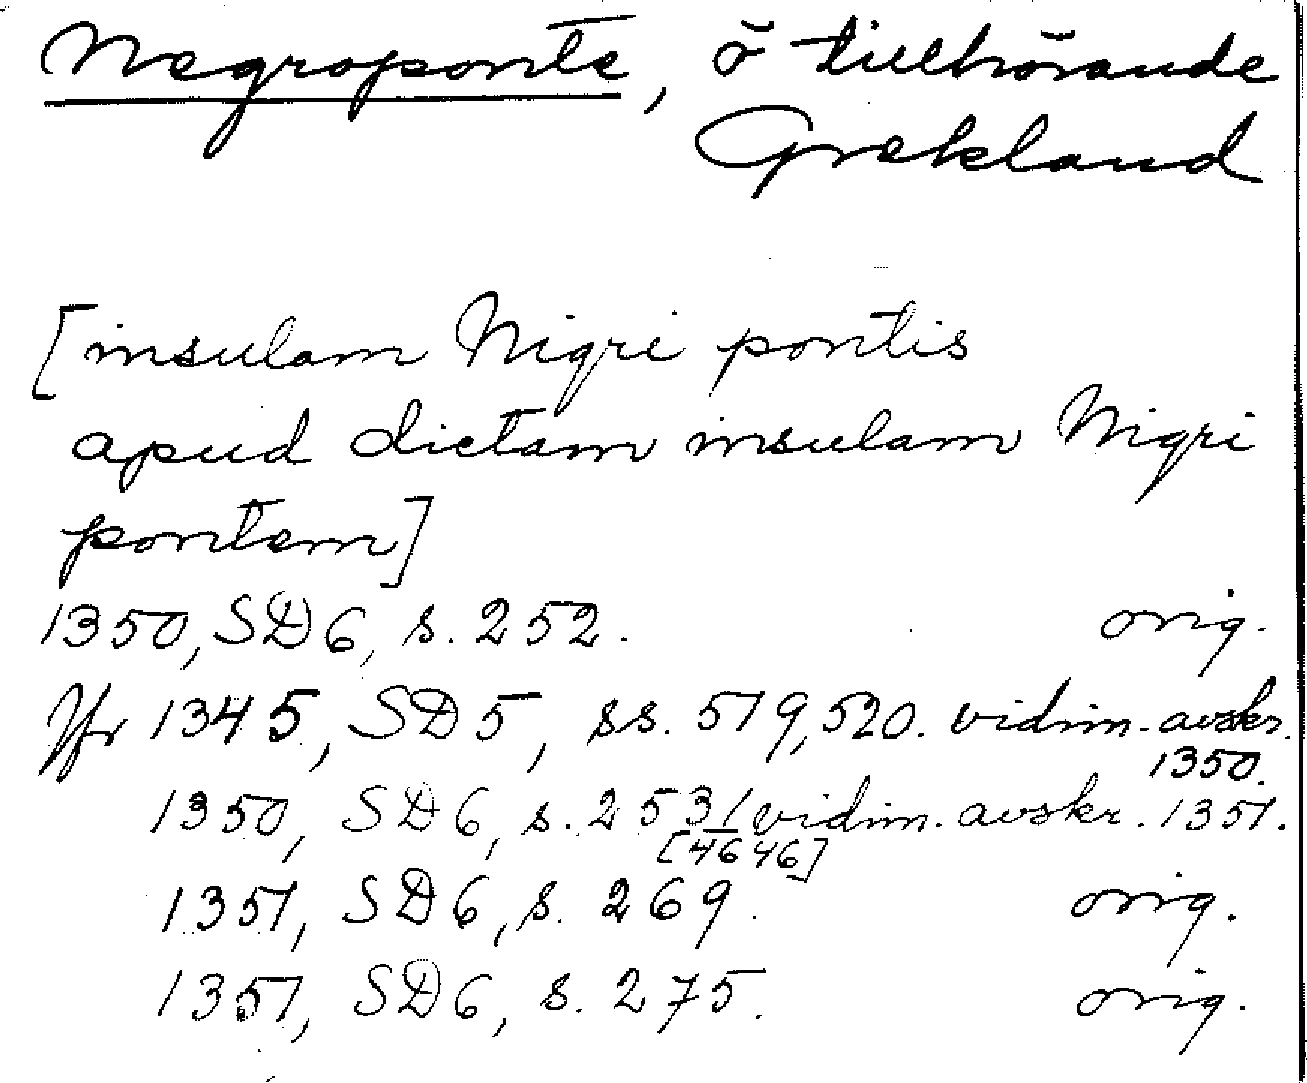 Negroponte, ö tillhörande
Grekland
[insulam Nigri pontis
apud dictam insulam Nigri
pontem]
1350, SD 6, s. 252. orig.
Jfr 1345, SD 5, ss. 519, 520. vidim. avskr.
1350.
1350, SD 6, s. 253 / vidim. avskr. 1351.
[4646]
1351, SD 6, s. 269. orig.
1351, SD 6, s. 275. orig.